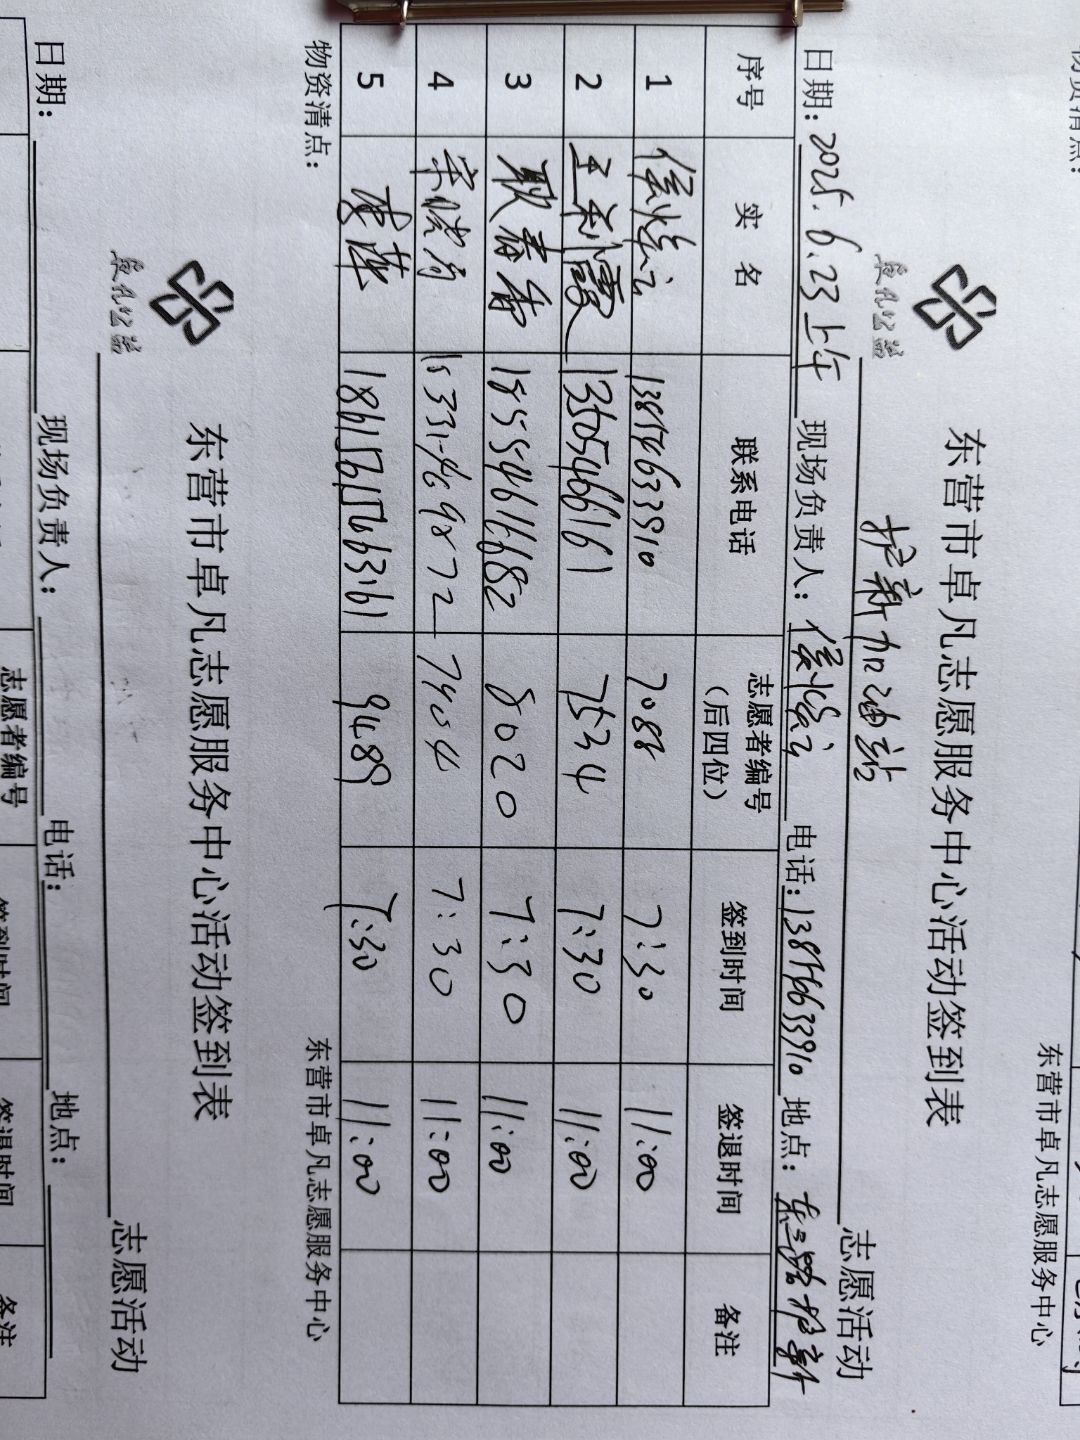 卓凡公益
东营市卓凡志愿服务中心活动签到表
护新加油站 志愿活动
日期：2025.6.23上午 现场负责人： 电话： 地点：
序号 实名 联系电话 志愿者编号（后四位） 签到时间 签退时间 备注
1 13854633910 7088 7:30 11:00
2 王利霞 13505466161 7534 7:30 11:00
3 耿春香 18554616682 8020 7:30 11:00
4 7:30 11:00
5 9489 7:30 11:00
物资清点： 东营市卓凡志愿服务中心
卓凡公益
东营市卓凡志愿服务中心活动签到表
志愿活动
日期： 现场负责人： 电话： 地点：
志愿者编号 签到时间 签退时间 备注
物资清点：
东营市卓凡志愿服务中心